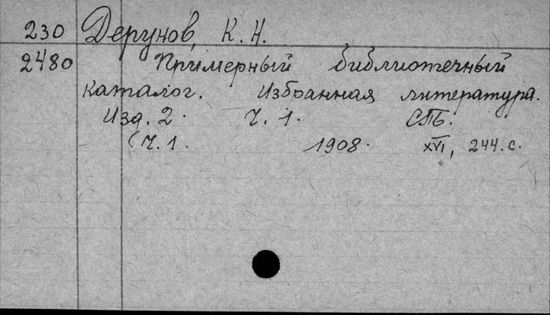 230 Дерунов, К. Н.
2480 Примерный библиотечный
каталог. Избранная литература.
Изд. 2. Ч. 1. СПБ.
(Ч. 1. 1908. XVI, 244 с.